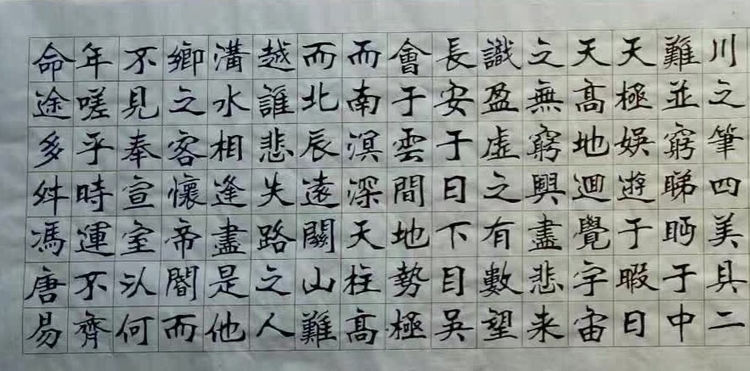 川之筆四美具二
難並窮睇眄于中
天極娛遊于暇日
天高地迥覺宇宙
之無窮興盡悲来
識盈虛之有數望
長安于日下目吳
會于雲間地勢極
而南溟深天柱高
而北辰遠關山難
越誰悲失路之人
溝水相逢盡是他
鄉之客懷帝閽而
不見奉宣室以何
年嗟乎時運不齊
命途多舛馮唐易